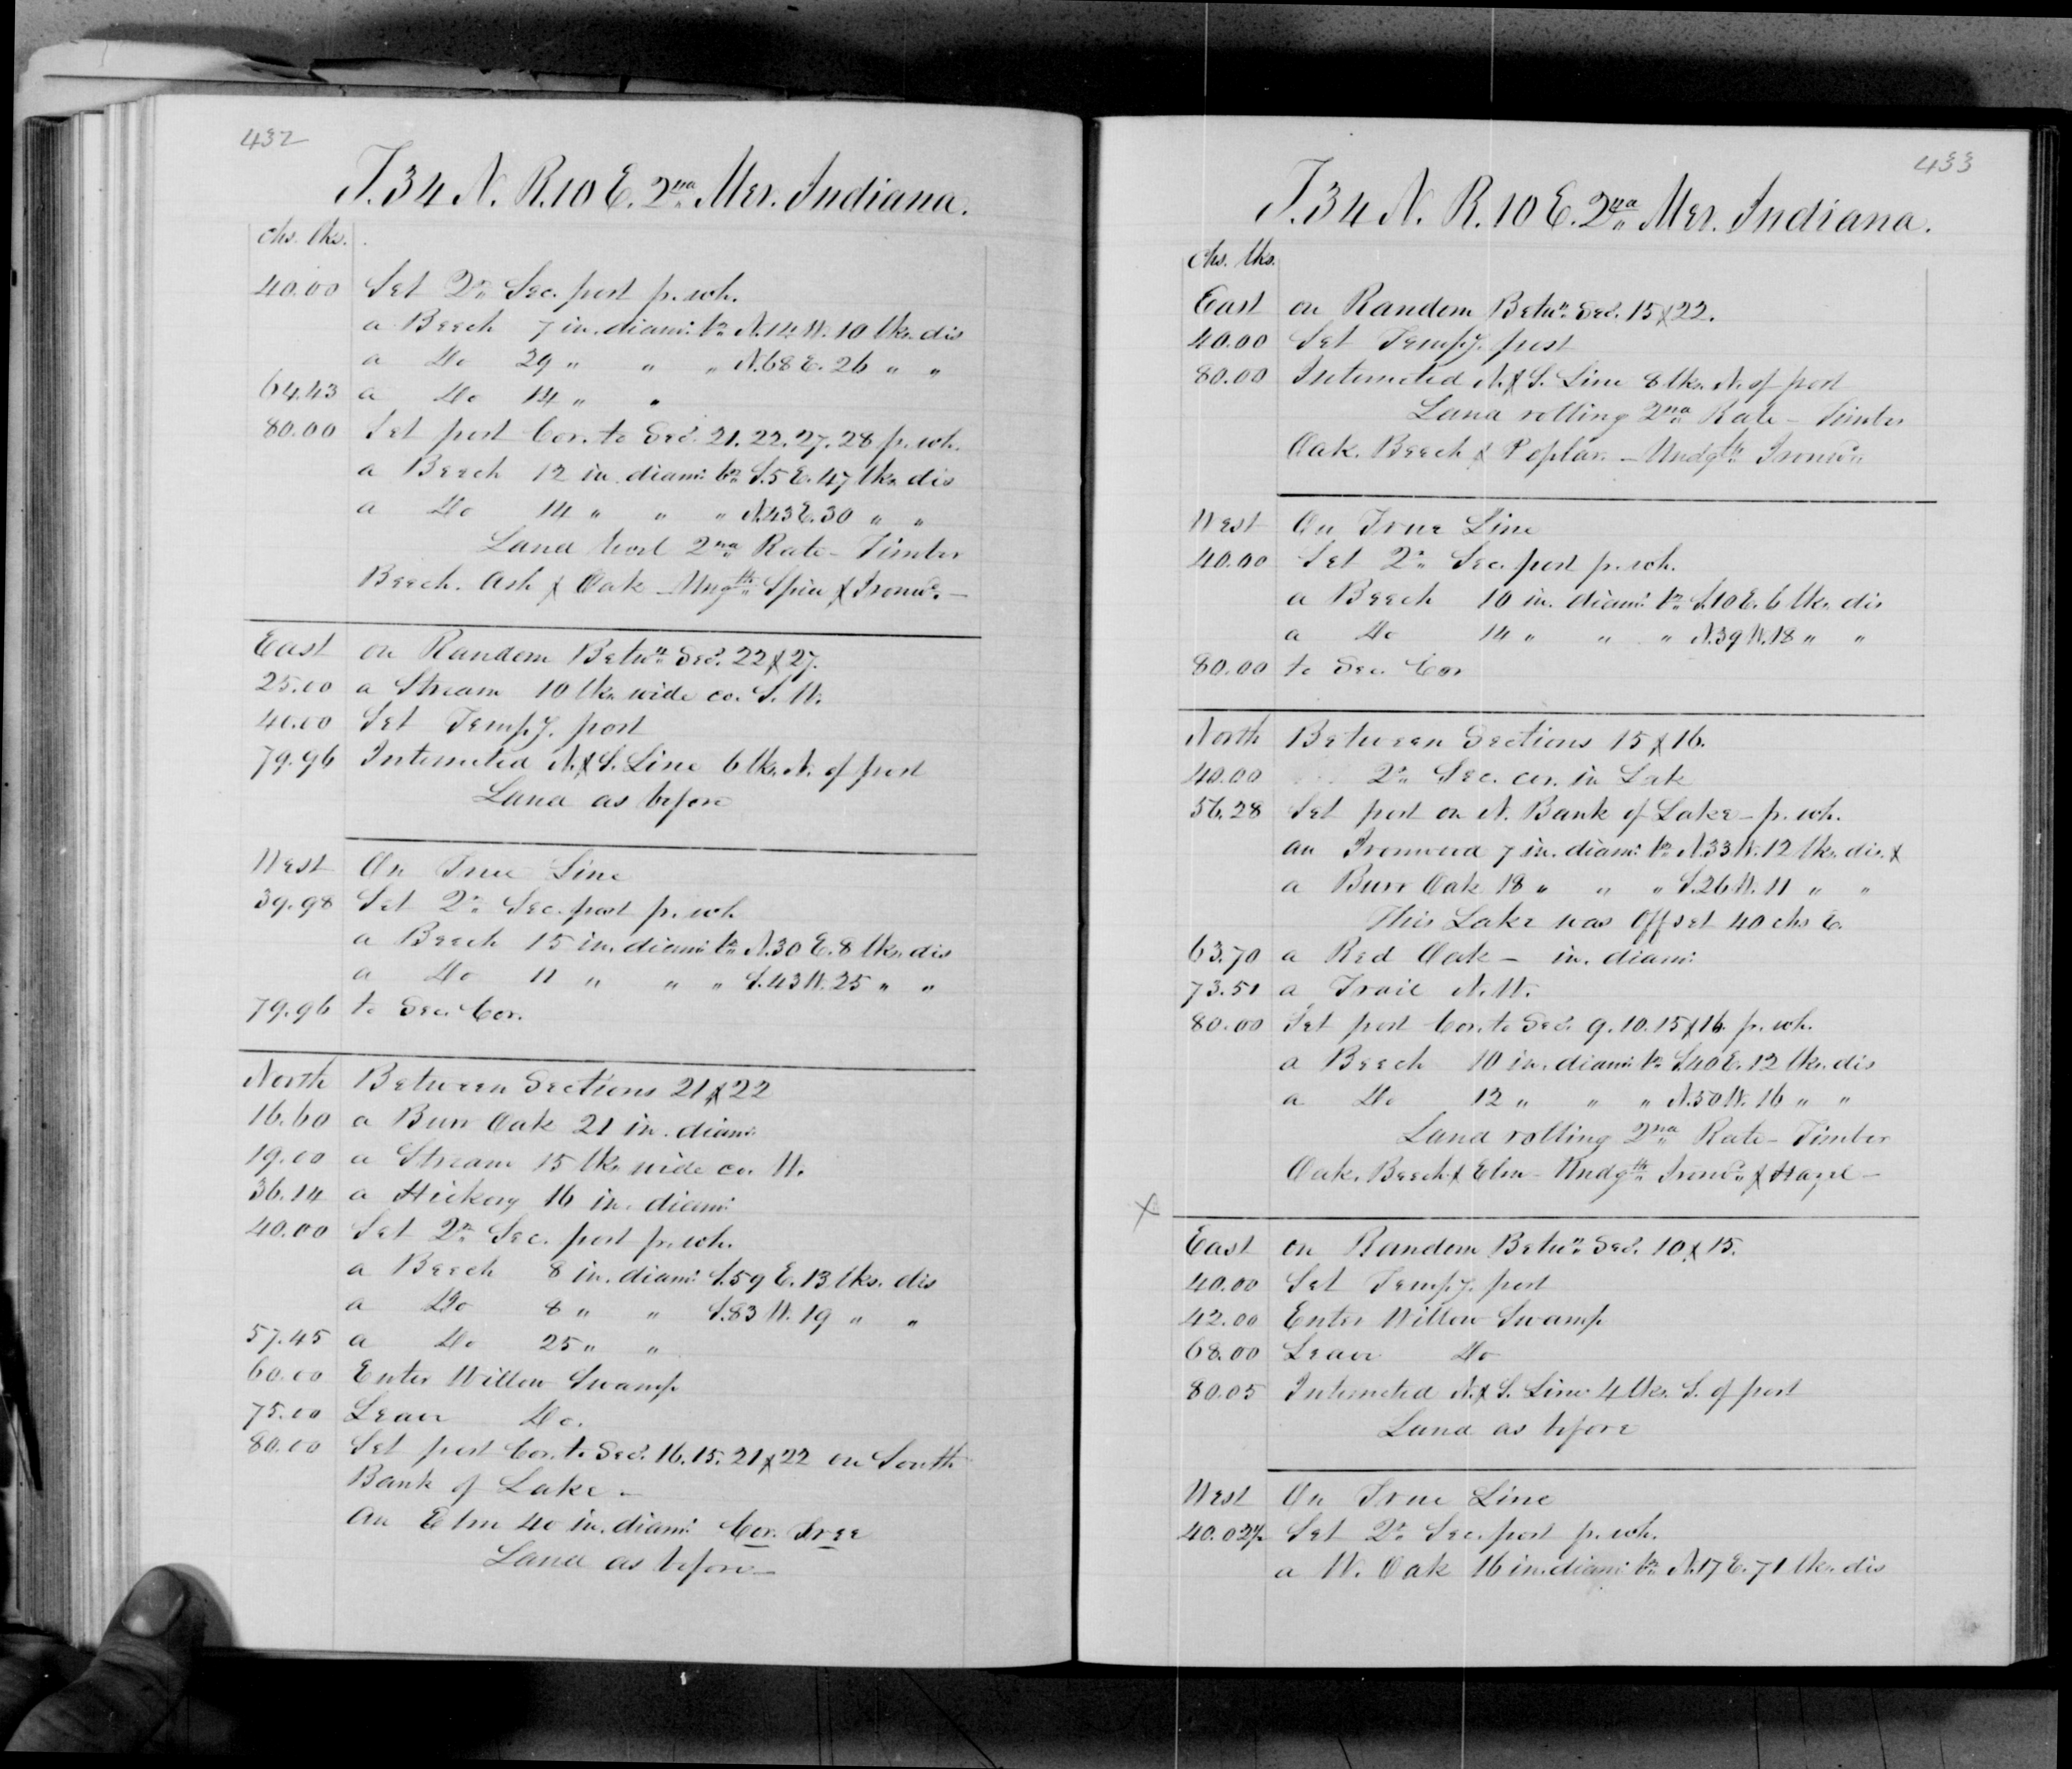 432
T. 34 N. R. 10 E. 2nd Mer. Indiana.
chs. lks.
40.00 Set 2r. Sec. post p. wh.
a Beech 7 in. diam: br. N. 14 W. 10 lks. dis
a Do 29 " " " N. 68 E. 26 " "
64.43 a Do 14 " "
80.00 Set post Cor. to Secs. 21. 22. 27. 28 p. wh.
a Beech 12 in. diam: br. S. 5 E. 47 lks. dis
a Do 14 " " " N. 43 E. 30 " "
Land 2nd Rate - Timber
Beech. Ash & Oak - Ungth. Spice & Ironwd. -
East on Random Betwn. Secs. 22 & 27.
25.00 a Stream 10 lks. wide co. S. W.
40.00 Set Tempy. post
79.96 Intersected N. & S. Line 6 lks. N. of post
Land as before
West On True Line
39.98 Set 2r. Sec. post p. wh.
a Beech 15 in. diam: br. N. 30 E. 8 lks. dis
a Do 11 " " " S. 43 W. 25 " "
79.96 to Sec. Cor.
North Between Sections 21 & 22
16.60 a Burr Oak 21 in. diam:
19.00 a Stream 15 lks. wide co. W.
36.14 a Hickory 16 in. diam:
40.00 Set 2r. Sec. post p. wh.
a Beech 8 in. diam: S. 59 E. 13 lks. dis
a Do 8 " " S. 83 W. 19 " "
57.45 a Do 25 " "
60.00 Enter Willow Swamp
75.00 Leave Do.
80.00 Set post Cor. to Secs. 16. 15. 21 & 22 on South
Bank of Lake -
An Elm 40 in. diam: Cor. Tree
Land as before -
433
T. 34 N. R. 10 E. 2nd Mer. Indiana.
Chs. lks.
East on Random Betwn. Secs. 15 & 22.
40.00 Set Tempy. post
80.00 Intersected N. & S. Line 8 lks. N. of post
Land rolling 2nd Rate - Timber
Oak. Beech & Poplar. - Undgth. Ironwd.
West On True Line
40.00 Set 2r. Sec. post p. wh.
a Beech 10 in. diam: br. S. 10 E. 6 lks. dis
a Do 14 " " " N. 39 W. 18 " "
80.00 to Sec. Cor
North Between Sections 15 & 16.
40.00 2r. Sec. cor. in Lak
56.28 Set post on N. Bank of Lake - p. wh.
an Ironwood 7 in. diam: br. N. 33 W. 12 lks. dis. &
a Burr Oak 18 " " " S. 26 W. 11 " "
This Lake was Offset 40 chs E.
63.70 a Red Oak - in. diam:
73.51 a Trail N. W.
80.00 Set post Cor. to Secs. 9. 10. 15 & 16 p. wh.
a Beech 10 in. diam: br. S. 40 E. 12 lks. dis
a Do 12 " " " N. 50 W. 16 " "
Land rolling 2nd Rate - Timber
Oak. Beech & Elm - Undgth. Ironwd. & Hazel -
X
East on Random Betwn. Secs. 10 & 15.
40.00 Set Tempy. post
42.00 Enter Willow Swamp
68.00 Leave Do
80.05 Intersected N. & S. Line 4 lks. S. of post
Land as before
West On True Line
40.02½ Set 2r. Sec. post p. wh.
a W. Oak 16 in. diam: br. N. 17 E. 71 lks. dis